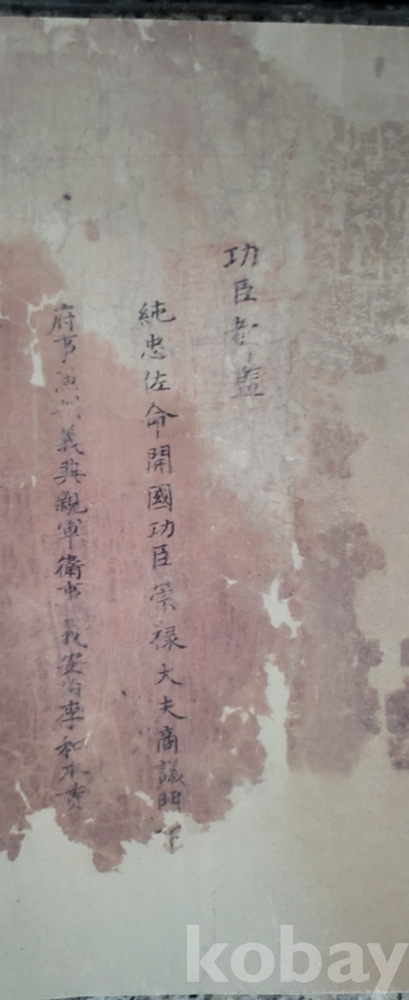 功臣都監
純忠佐命開國功臣崇祿大夫商議門下
府事義興親軍衛事義安伯李和
kobay